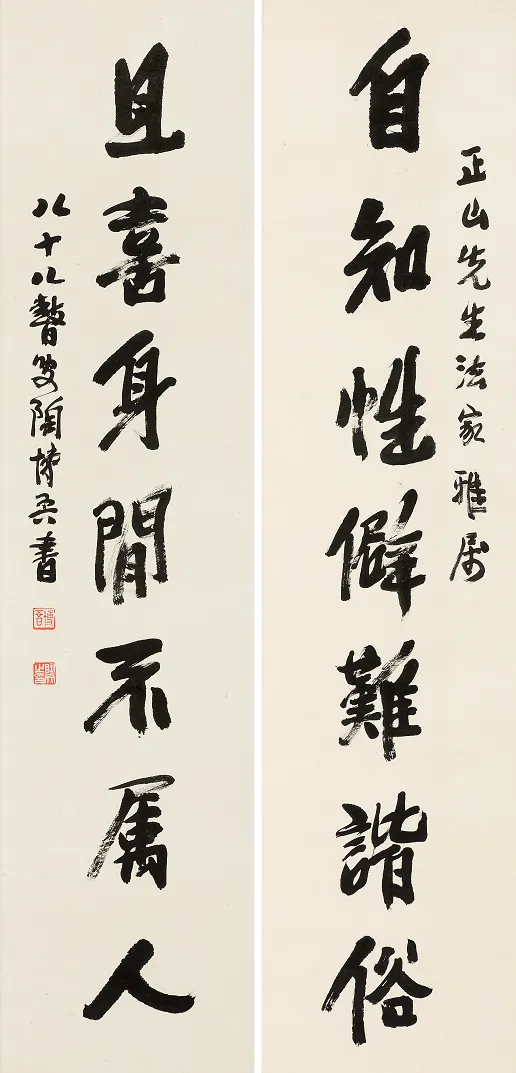 正山先生法家雅属
自知性僻難諧俗
且喜身閒不属人
八十八瞽叟陶博吾書
博吾